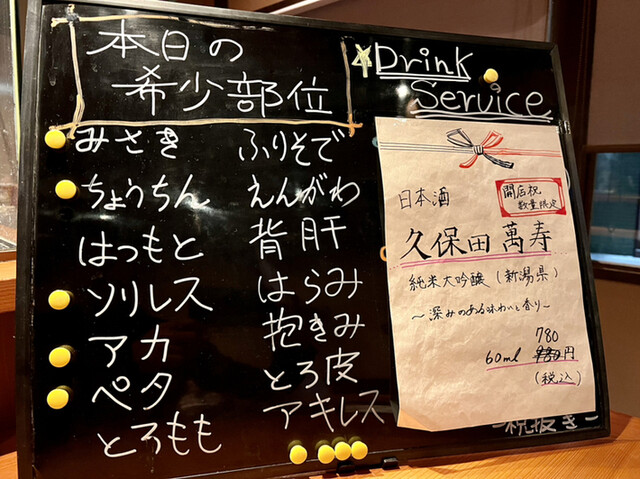 本日の
希少部位
みさき
ちょうちん
はつもと
ソリレス
アカ
ペタ
とろもも
ふりそで
えんがわ
背肝
はらみ
抱きみ
とろ皮
アキレス
Drink
Service
日本酒
開店祝
数量限定
久保田 萬寿
純米大吟醸（新潟県）
〜深みのある味わいと香り〜
780
60ml 980円
（税込）
税抜き